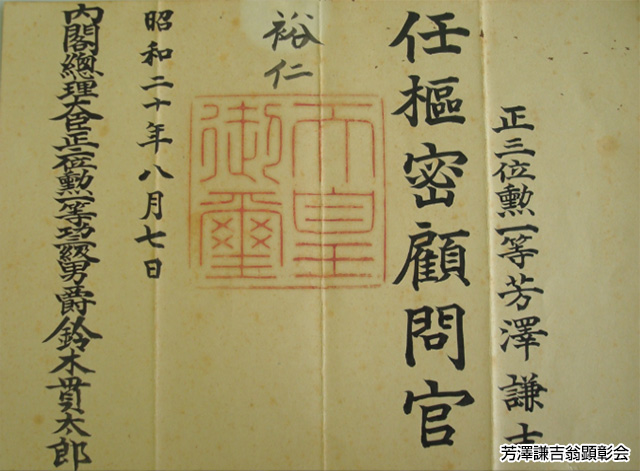 正三位勲一等芳澤謙吉
任樞密顧問官
裕仁
天皇御璽
昭和二十年八月七日
内閣總理大臣正三位勲一等功三級男爵鈴木貫太郎
芳澤謙吉翁顕彰会